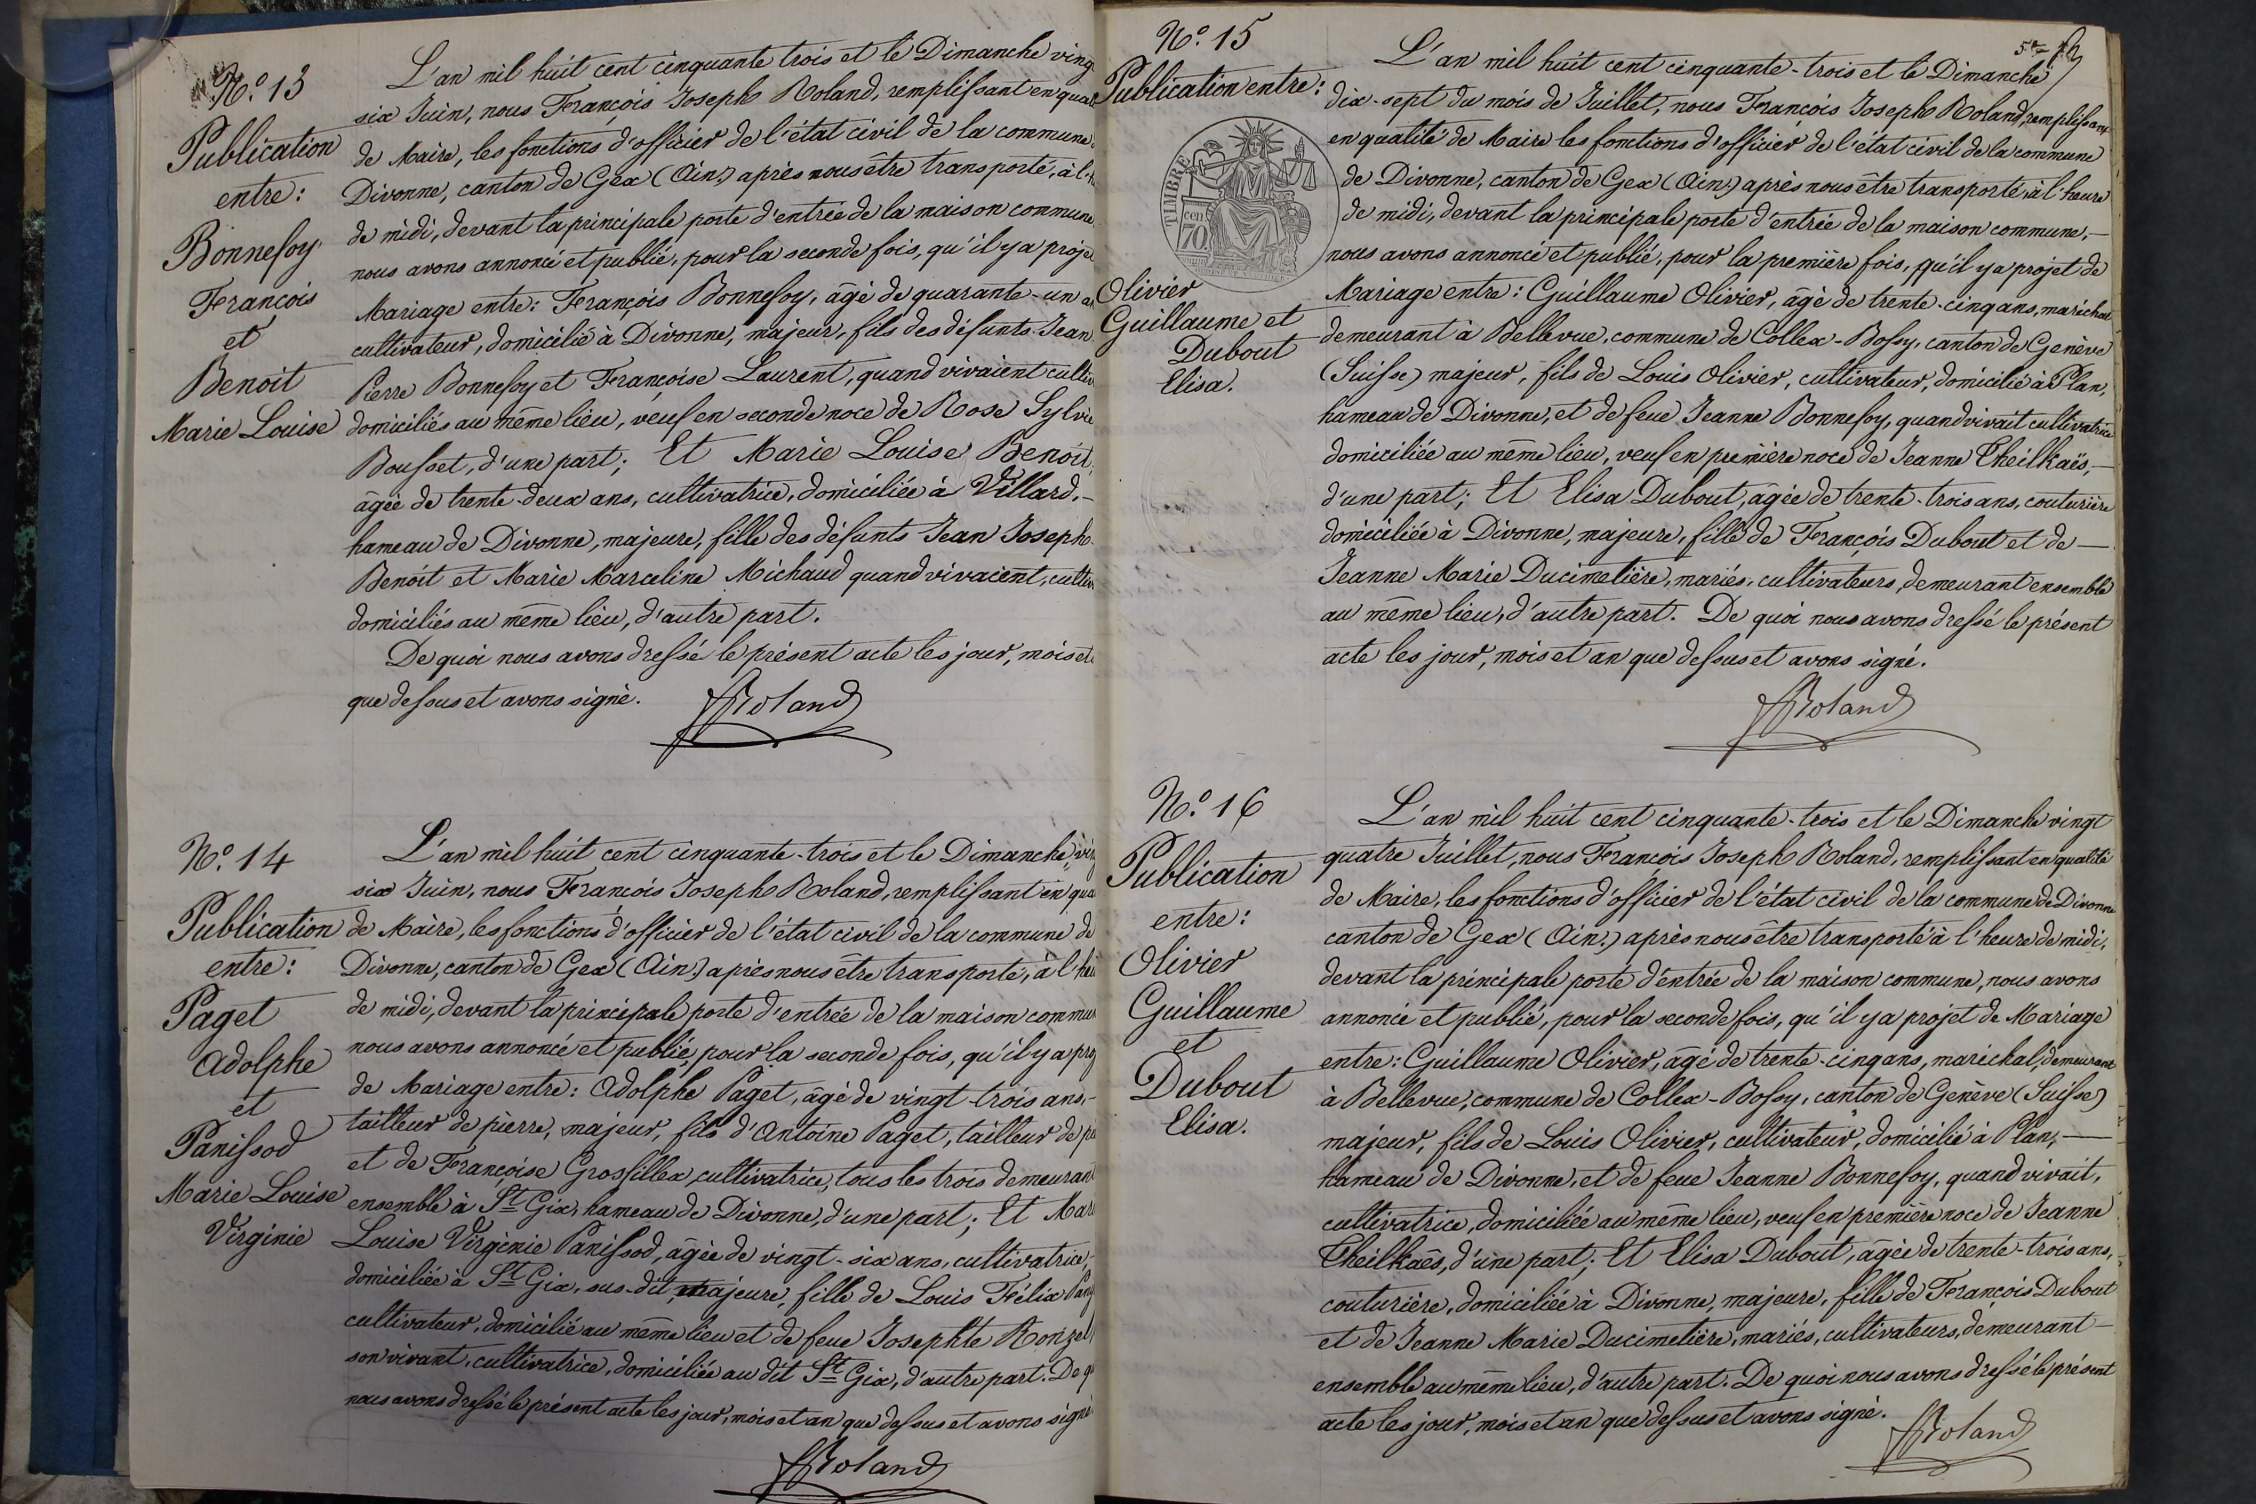 N.° 13
Publication
entre:
Bonnefoy
François
et
Benoit
Marie Louise
L'an mil huit cent cinquante trois et le Dimanche ving
six Juin, nous François Joseph Roland, remplissant en qual
de Maire, les fonctions d'officier de l'état civil de la commune
Divonne, canton de Gex (Ain.) après nous être transporté, à l'h
de midi, devant la principale porte d'entrée de la maison commune
nous avons annoncé et publié, pour la seconde fois, qu'il y a proje
Mariage entre: François Bonnefoy, âgé de quarante-un a
cultivateur, domicilié à Divonne, majeur, fils des défunts Jean
Pierre Bonnefoy et Françoise Laurent, quand vivaient cultiv
domiciliés au même lieu, veuf en seconde noce de Rose Sylvie
Bousset, d'une part; Et Marie Louise Benoit,
âgée de trente-deux ans, cultivatrice, domiciliée à Villard,-
hameau de Divonne, majeure, fille des défunts Jean Joseph
Benoit et Marie Marceline Michaud quand vivaient, cultiv
domiciliés au même lieu, d'autre part.
De quoi nous avons dressé le présent acte les jour, mois et
que dessus et avons signé.
JRoland
N.° 14
Publication
entre:
Paget
Adolphe
et
Panissod
Marie Louise
Virginie
L'an mil huit cent cinquante-trois et le Dimanche vin
six Juin, nous François Joseph Roland, remplissant en qua
de Maire, les fonctions d'officier de l'état civil de la commune de
Divonne, canton de Gex (Ain.) après nous être transporté, à l'heu
de midi, devant la principale porte d'entrée de la maison commun
nous avons annoncé et publié, pour la seconde fois, qu'il y a proj
de Mariage entre: Adolphe Paget, âgé de vingt-trois ans,-
tailleur de pierre, majeur, fils d'Antoine Paget, tailleur de pi
et de Françoise Grosfillex, cultivatrice, tous les trois demeurant
ensemble à St Gix, hameau de Divonne, d'une part; Et Mari
Louise Virginie Panissod, âgée de vingt-six ans, cultivatrice,
domiciliée à St Gix, sus-dit, majeure, fille de Louis Félix Pani
cultivateur, domicilié au même lieu et de feue Josephte Ronzel
son vivant, cultivatrice, domiciliée au dit St Gix, d'autre part. De q
nous avons dressé le présent acte les jour, mois et an que dessus et avons signé
JRoland
N.° 15
Publication entre:
TIMBRE
cen
70
Olivier
Guillaume et
Dubout
Elisa.
L'an mil huit cent cinquante-trois et le Dimanche
dix-sept du mois de Juillet, nous François Joseph Roland, remplissant
en qualité de Maire les fonctions d'officier de l'état civil de la commune
de Divonne, canton de Gex (Ain.) après nous être transporté, à l'heure
de midi, devant la principale porte d'entrée de la maison commune,-
nous avons annoncé et publié, pour la première fois, qu'il y a projet de
Mariage entre: Guillaume Olivier, âgé de trente-cinq ans, maréchal
demeurant à Bellevue, commune de Collex-Bossy, canton de Genève
(Suisse) majeur, fils de Louis Olivier, cultivateur, domicilié à Plan,
hameau de Divonne, et de feue Jeanne Bonnefoy, quand vivait cultivatrice
domiciliée au même lieu, veuf en première noce de Jeanne Theilkaës,-
d'une part; Et Elisa Dubout, âgée de trente-trois ans, couturière
domiciliée à Divonne, majeure, fille de François Dubout et de-
Jeanne Marie Ducimetière, mariés, cultivateurs, demeurant ensemble
au même lieu, d'autre part. De quoi nous avons dressé le présent
acte les jour, mois et an que dessus et avons signé.
JRoland
N.° 16
Publication
entre:
Olivier
Guillaume
et
Dubout
Elisa.
L'an mil huit cent cinquante-trois et le Dimanche vingt
quatre Juillet, nous François Joseph Roland, remplissant en qualité
de Maire, les fonctions d'officier de l'état civil de la commune de Divonne
canton de Gex (Ain.) après nous être transporté à l'heure de midi,
devant la principale porte d'entrée de la maison commune, nous avons
annoncé et publié, pour la seconde fois, qu'il y a projet de Mariage
entre: Guillaume Olivier, âgé de trente-cinq ans, maréchal, demeurant
à Bellevue, commune de Collex-Bossy, canton de Genève (Suisse)
majeur, fils de Louis Olivier, cultivateur, domicilié à Plan,-
hameau de Divonne, et de feue Jeanne Bonnefoy, quand vivait,
cultivatrice, domiciliée au même lieu, veuf en première noce de Jeanne
Theilkaës, d'une part; Et Elisa Dubout, âgée de trente-trois ans,
couturière, domiciliée à Divonne, majeure, fille de François Dubout
et de Jeanne Marie Ducimetière, mariés, cultivateurs, demeurant-
ensemble au même lieu, d'autre part. De quoi nous avons dressé le présent
acte les jour, mois et an que dessus et avons signé.
JRoland